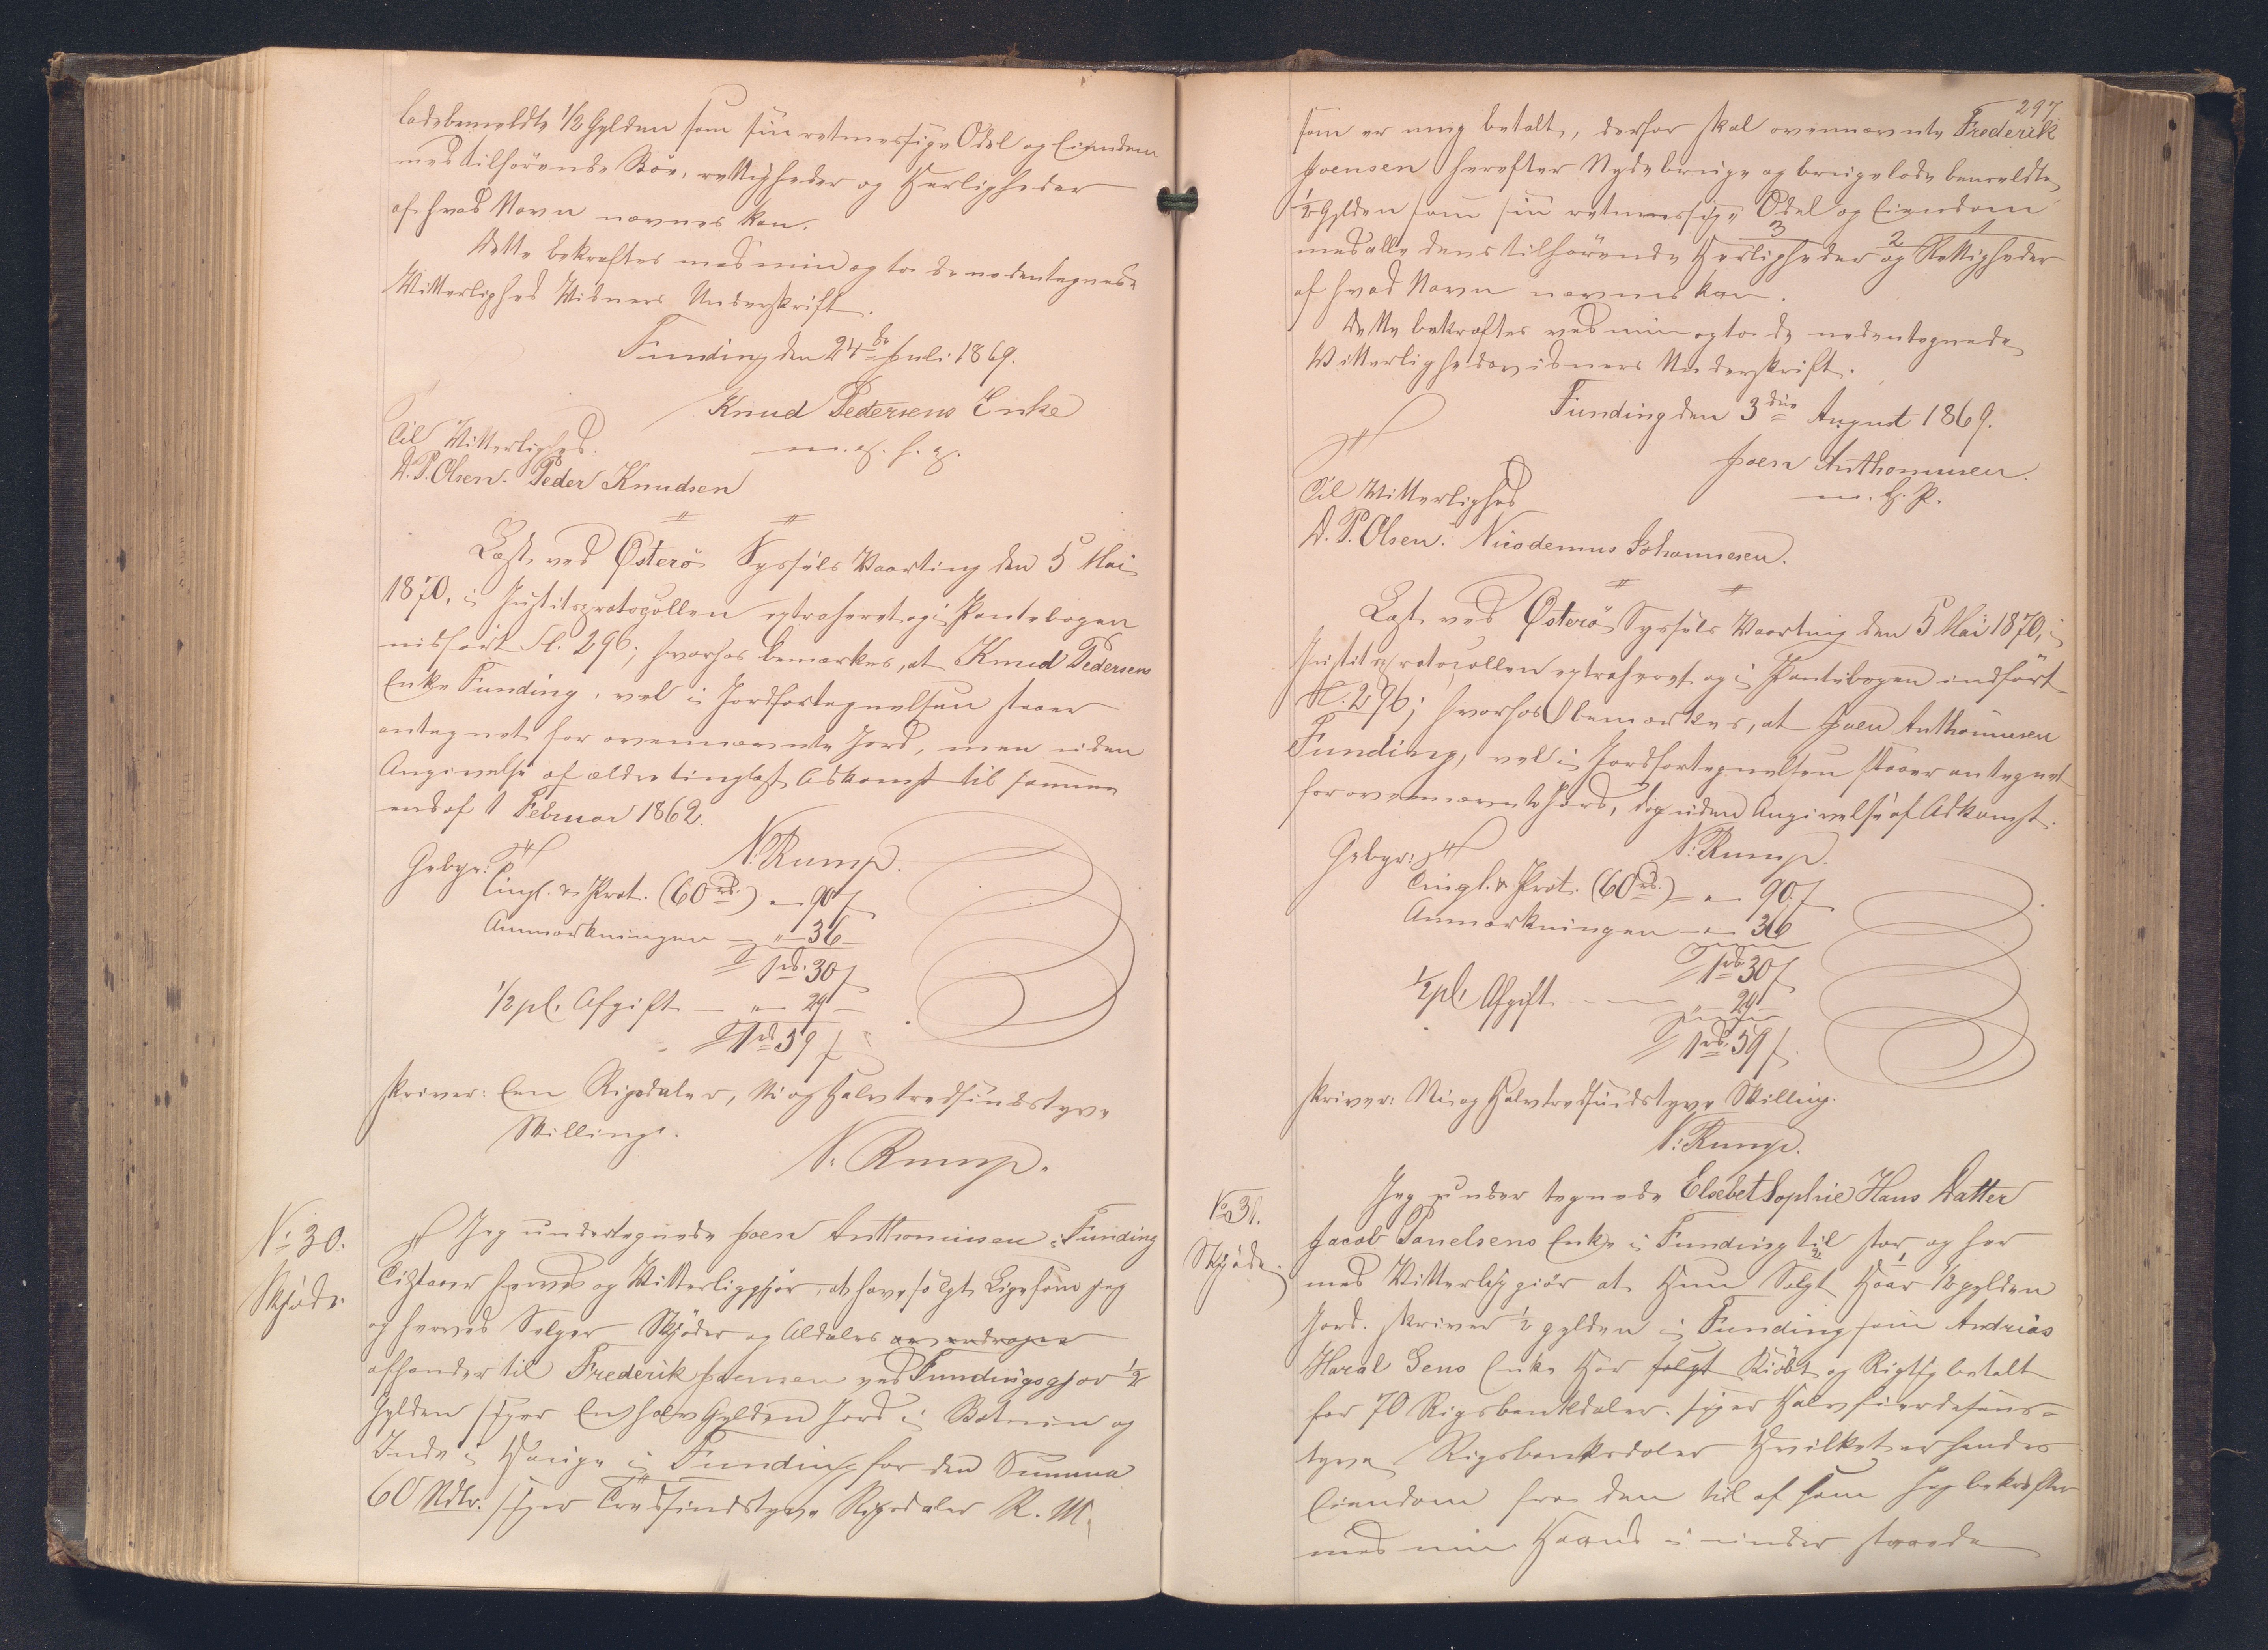 ladebemeldte 1/2 Gylden som sin retmessige Odel og Eiendom
med tilhörende Böe, rettigheder og Herligheder
af hvad Navn navnes kan.
Dette bekraftes med min og to de nedentegnede
Witterlighed Widners Underskrift.
Funding den 24de Juli 1869.
Knud Pedersens Enke
Til Witterlighed.
D. P. Olsen. Peder Knudsen
Læst ved Österö Syssels Vaarting den 5 Mai
1870, i Justitsprotocollen extraheret og i Pantebogen
indfört Fl. 296; hvorhos bemærkes, at Knud Pedersens
Enke Funding, vel i Jordfortegnelsen staaer
antegnet for ovennævnte Jord, men uden
Angivelse af ældre tinglæst Adkomst til samme
end af 1 Februar 1862.
N. Rump.
Gebyr:
Tingl. & Prot. (60 rd.) " 90 s
Anmærkningen " 36
1 rd. 30 s
1/2 pCt. Afgift " 29
1 rd. 59 s
skriver: Een Rigsdaler, Ni og Halvtredsindstyve
Skilling.
N. Rump.
No 30.
Skjöde.
Jeg undertegnede Joen Anthoniusen i Funding
Tilstaaer herved og Witterliggjör, at have solgt Ligesom jeg
og herved Selger Skjöder og Aldeles
afhender til Frederik Joensen ved Fundingsgjov 1/2
Gylden siger En halv Gylden Jord i Botnin og
Inde i Hauge i Funding for den Summa
60 Rdlr. siger Tredsindstyve Rigsdaler R. M.
297
som er mig betalt, derfor skal ovennævnte Frederik
Joensen herefter Nyde bruge og brugelade bemeldte
1/2 Gylden som sin retmæssige Odel og Eiendom
3 2 1
med alle dens tilhörende Herligheder og Rettigheder
af hvad Navn navnes kan.
Dette bekraftes ved min og to de nedentegnede
Witterlighedsvidners Underskrift.
Funding den 3die August 1869.
Joen Anthoniusen.
m. H. P.
Til Witterlighed
D. P. Olsen. Nicodemus Johannesen.
Læst ved Österö Syssels Vaarting den 5 Mai 1870, i
Justitsprotocollen extraheret og i Pantebogen indfört
Fl. 296; hvorhos bemærkes, at Joen Anthoniusen
Funding, vel i Jordfortegnelsen staaer antegnet
for ovennævnte Jord, dog uden Angivelse af Adkomst.
N. Rump.
Gebyr:
Tingl. & Prot. (60 rd.) " 90 s
Anmærkningen " 36
1 rd. 30 s
1/2 pCt. Afgift " 29
1 rd. 59 s.
skriver: Ni og Halvtredsindstyve Skilling.
N. Rump.
No 31.
Skjöde.
Jeg under tegnede Elsebet Sophie Hans Datter
Jacob Poulsens Enke i Funding til staar og her
2 1
med Witterlig giör at Hun Solgt Haar 1/2 gylden
Jord. skriver 1/2 gylden i Funding som Andrias
Haral Sens Enke Har solgt Kiöbt og Rigtig betalt
for 70 Rigsbankdaler. siger Halvfierdesins-
tyve Rigsbanksdaler Hvilket er hendes
Eiendom fra den tid af som Jeg bekræfter
med min Haand i under staaede